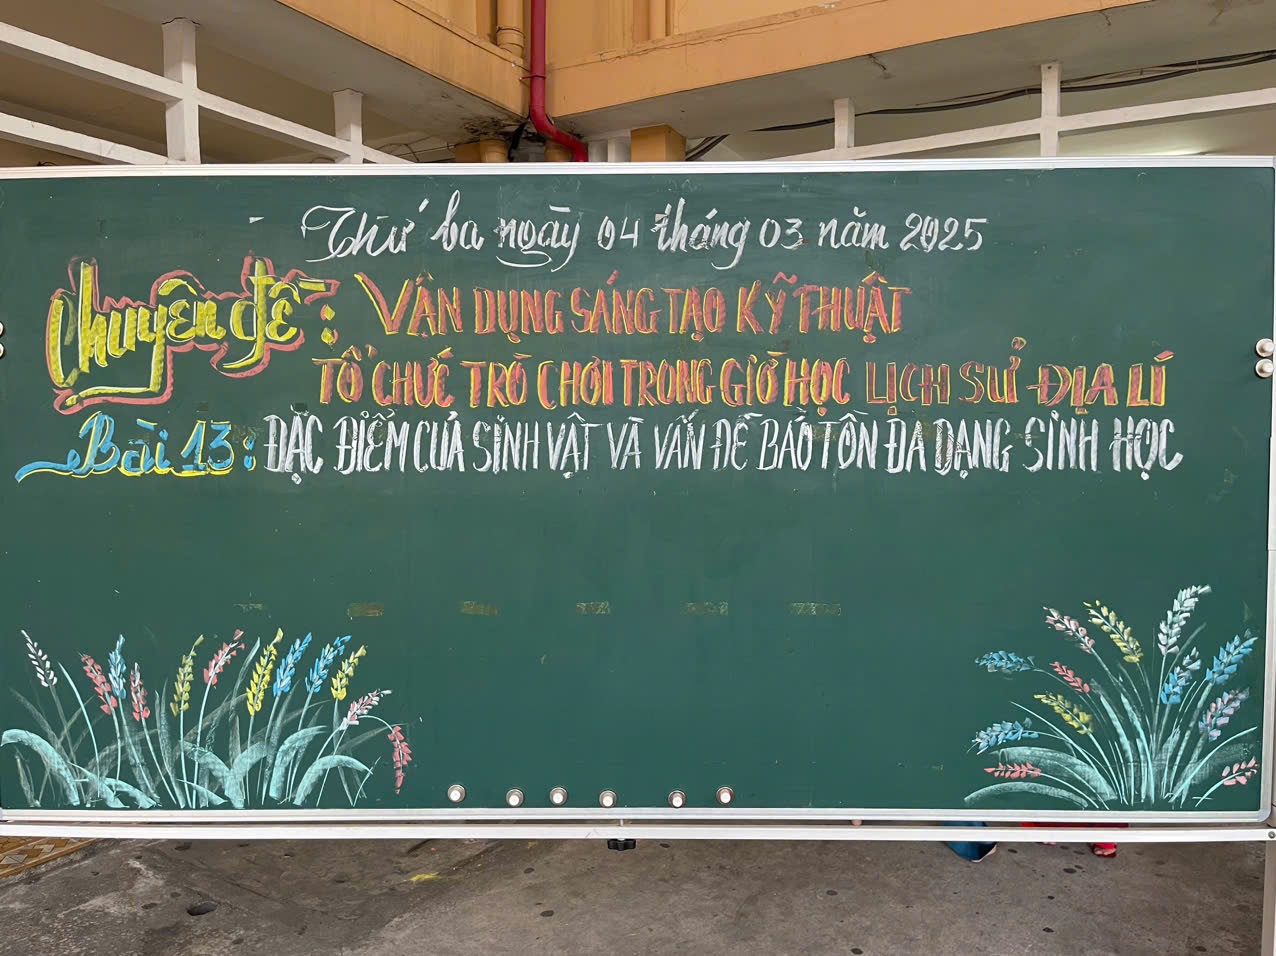 Thứ ba ngày 04 tháng 03 năm 2025
Chuyên đề: VẬN DỤNG SÁNG TẠO KỸ THUẬT
TỔ CHỨC TRÒ CHƠI TRONG GIỜ HỌC LỊCH SỬ ĐỊA LÍ
Bài 13: ĐẶC ĐIỂM CỦA SINH VẬT VÀ VẤN ĐỀ BẢO TỒN ĐA DẠNG SINH HỌC